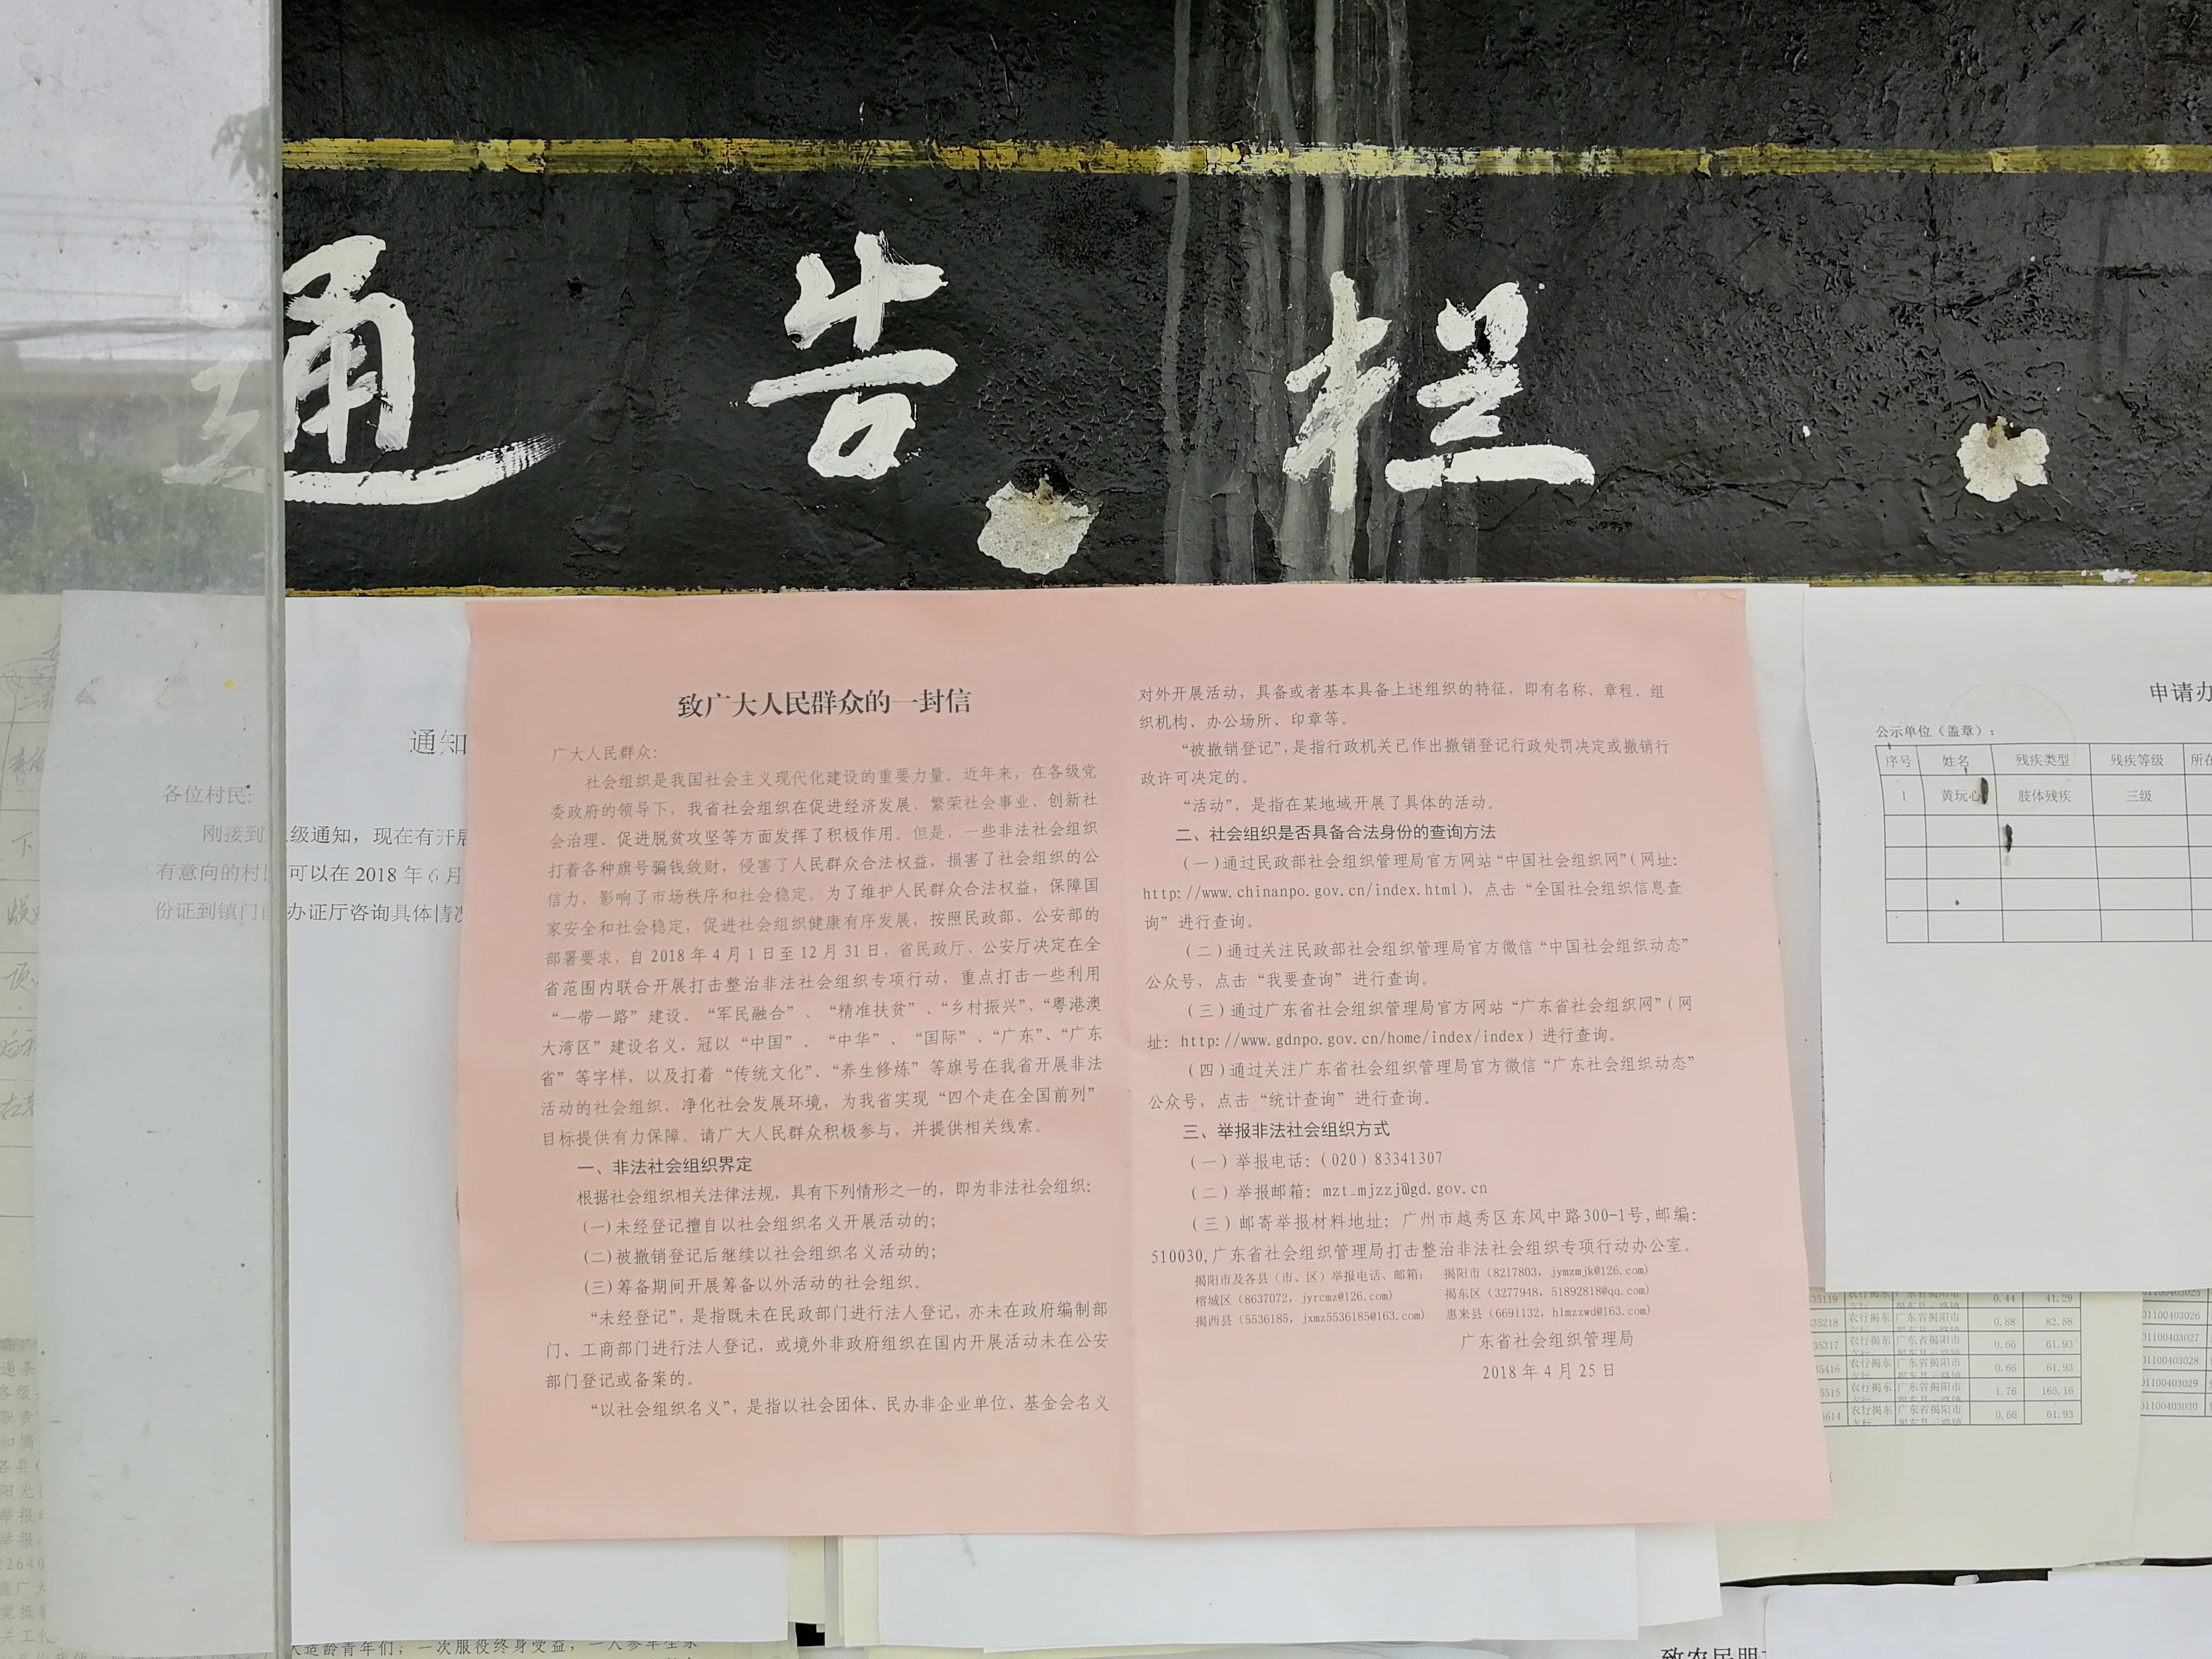 通告栏
致广大人民群众的一封信
广大人民群众：
社会组织是我国社会主义现代化建设的重要力量。近年来，在各级党
委政府的领导下，我省社会组织在促进经济发展、繁荣社会事业、创新社
会治理、促进脱贫攻坚等方面发挥了积极作用。但是，一些非法社会组织
打着各种旗号骗钱敛财，侵害了人民群众合法权益，损害了社会组织的公
信力，影响了市场秩序和社会稳定。为了维护人民群众合法权益，保障国
家安全和社会稳定，促进社会组织健康有序发展，按照民政部、公安部的
部署要求，自 2018 年 4 月 1 日至 12 月 31 日，省民政厅、公安厅决定在全
省范围内联合开展打击整治非法社会组织专项行动，重点打击一些利用
“一带一路”建设、“军民融合”、“精准扶贫”、“乡村振兴”、“粤港澳
大湾区”建设名义，冠以“中国”、“中华”、“国际”、“广东”、“广东
省”等字样，以及打着“传统文化”、“养生修炼”等旗号在我省开展非法
活动的社会组织，净化社会发展环境，为我省实现“四个走在全国前列”
目标提供有力保障。请广大人民群众积极参与，并提供相关线索。
一、非法社会组织界定
根据社会组织相关法律法规，具有下列情形之一的，即为非法社会组织：
（一）未经登记擅自以社会组织名义开展活动的；
（二）被撤销登记后继续以社会组织名义活动的；
（三）筹备期间开展筹备以外活动的社会组织。
“未经登记”，是指既未在民政部门进行法人登记，亦未在政府编制部
门、工商部门进行法人登记，或境外非政府组织在国内开展活动未在公安
部门登记或备案的。
“以社会组织名义”，是指以社会团体、民办非企业单位、基金会名义
对外开展活动，具备或者基本具备上述组织的特征，即有名称、章程、组
织机构、办公场所、印章等。
“被撤销登记”，是指行政机关已作出撤销登记行政处罚决定或撤销行
政许可决定的。
“活动”，是指在某地域开展了具体的活动。
二、社会组织是否具备合法身份的查询方法
（一）通过民政部社会组织管理局官方网站“中国社会组织网”（网址：
http://www.chinanpo.gov.cn/index.html），点击“全国社会组织信息查
询”进行查询。
（二）通过关注民政部社会组织管理局官方微信“中国社会组织动态”
公众号，点击“我要查询”进行查询。
（三）通过广东省社会组织管理局官方网站“广东省社会组织网”（网
址：http://www.gdnpo.gov.cn/home/index/index）进行查询。
（四）通过关注广东省社会组织管理局官方微信“广东社会组织动态”
公众号，点击“统计查询”进行查询。
三、举报非法社会组织方式
（一）举报电话：（020）83341307
（二）举报邮箱：mzt_mjzzj@gd.gov.cn
（三）邮寄举报材料地址：广州市越秀区东风中路300-1号，邮编：
510030，广东省社会组织管理局打击整治非法社会组织专项行动办公室。
揭阳市及各县（市、区）举报电话、邮箱： 揭阳市（8217803，jymzmjk@126.com）
榕城区（8637072，jyrcmz@126.com） 揭东区（3277948，51892818@qq.com）
揭西县（5536185，jxmz5536185@163.com） 惠来县（6691132，hlmzzwd@163.com）
广东省社会组织管理局
2018 年 4 月 25 日
通知
各位村民：
刚接到 级通知，现在有开展
有意向的村 可以在 2018 年 6 月
份证到镇门 办证厅咨询具体情况
申请办
公示单位（盖章）：
序号 姓名 残疾类型 残疾等级 所在
1 黄玩心 肢体残疾 三级
35119 农行揭东 广东省揭阳市 0.44 41.29
35218 农行揭东 广东省揭阳市 0.88 82.58 01100403026
35317 农行揭东 广东省揭阳市 0.66 61.93 01100403027
35416 农行揭东 广东省揭阳市 0.66 61.93 01100403028
5515 农行揭东 广东省揭阳市 1.76 165.16 01100403029
5614 农行揭东 广东省揭阳市 0.66 61.93 01100403030
适龄青年们，一次服役终身受益，一人参军全家
致农民朋